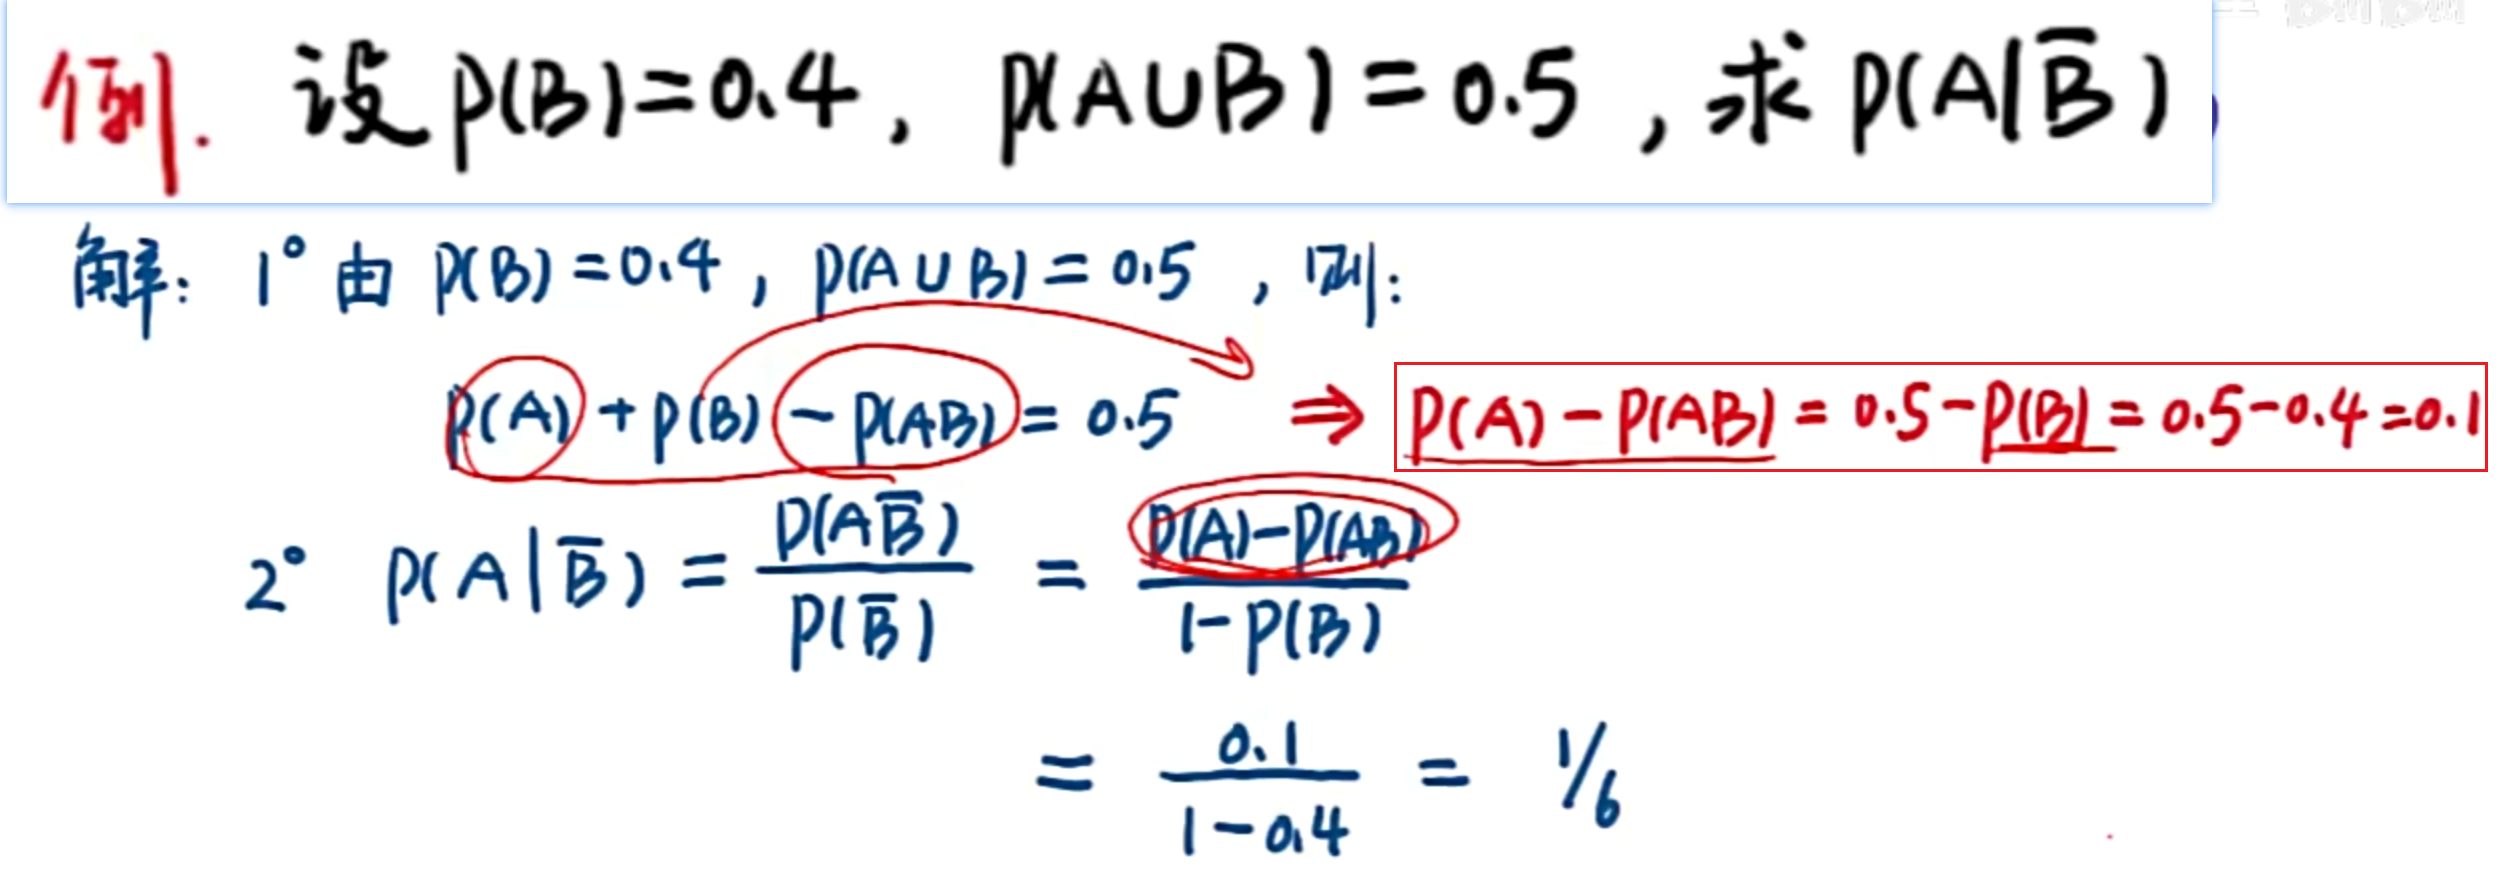 例. 设 P(B)=0.4, P(A∪B)=0.5, 求 P(A|B̅)
解: 1° 由 P(B)=0.4, P(A∪B)=0.5, 则:
P(A)+P(B)-P(AB)=0.5 ⇒ P(A)-P(AB)=0.5-P(B)=0.5-0.4=0.1
2° P(A|B̅)=P(AB̅)/P(B̅)=(P(A)-P(AB))/(1-P(B))
=0.1/(1-0.4)=1/6